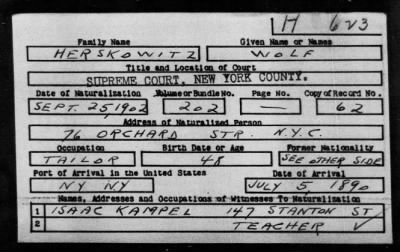 H 623
Family Name Given Name or Names
HERSKOWITZ WOLF
Title and Location of Court
SUPREME COURT, NEW YORK COUNTY.
Date of Naturalization Volume or Bundle No. Page No. Copy of Record No.
SEPT. 25, 1902 202 — 62
Address of Naturalized Person
76 ORCHARD STR. N.Y.C.
Occupation Birth Date or Age Former Nationality
TAILOR 48 SEE OTHER SIDE
Port of Arrival in the United States Date of Arrival
NY NY JULY 5, 1890
Names, Addresses and Occupations of Witnesses To Naturalization
1 ISAAC KAMPEL 147 STANTON ST
2 TEACHER V